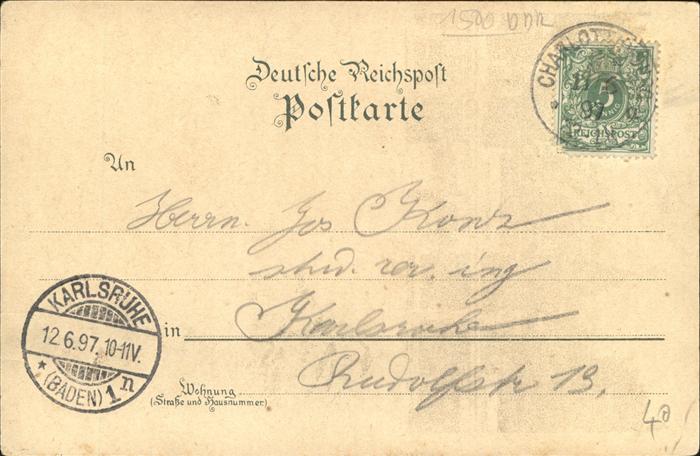 1500
Deutsche Reichspost
Postkarte
CHARLOTTENBURG
11 6
97
5
REICHSPOST
An
Herrn. Jos
stud. rer. ing
in Karlsruhe
Rudolfstr 13.
Wohnung
(Straße und Hausnummer)
KARLSRUHE
12.6.97. 10-11V.
* (BADEN) 1 n